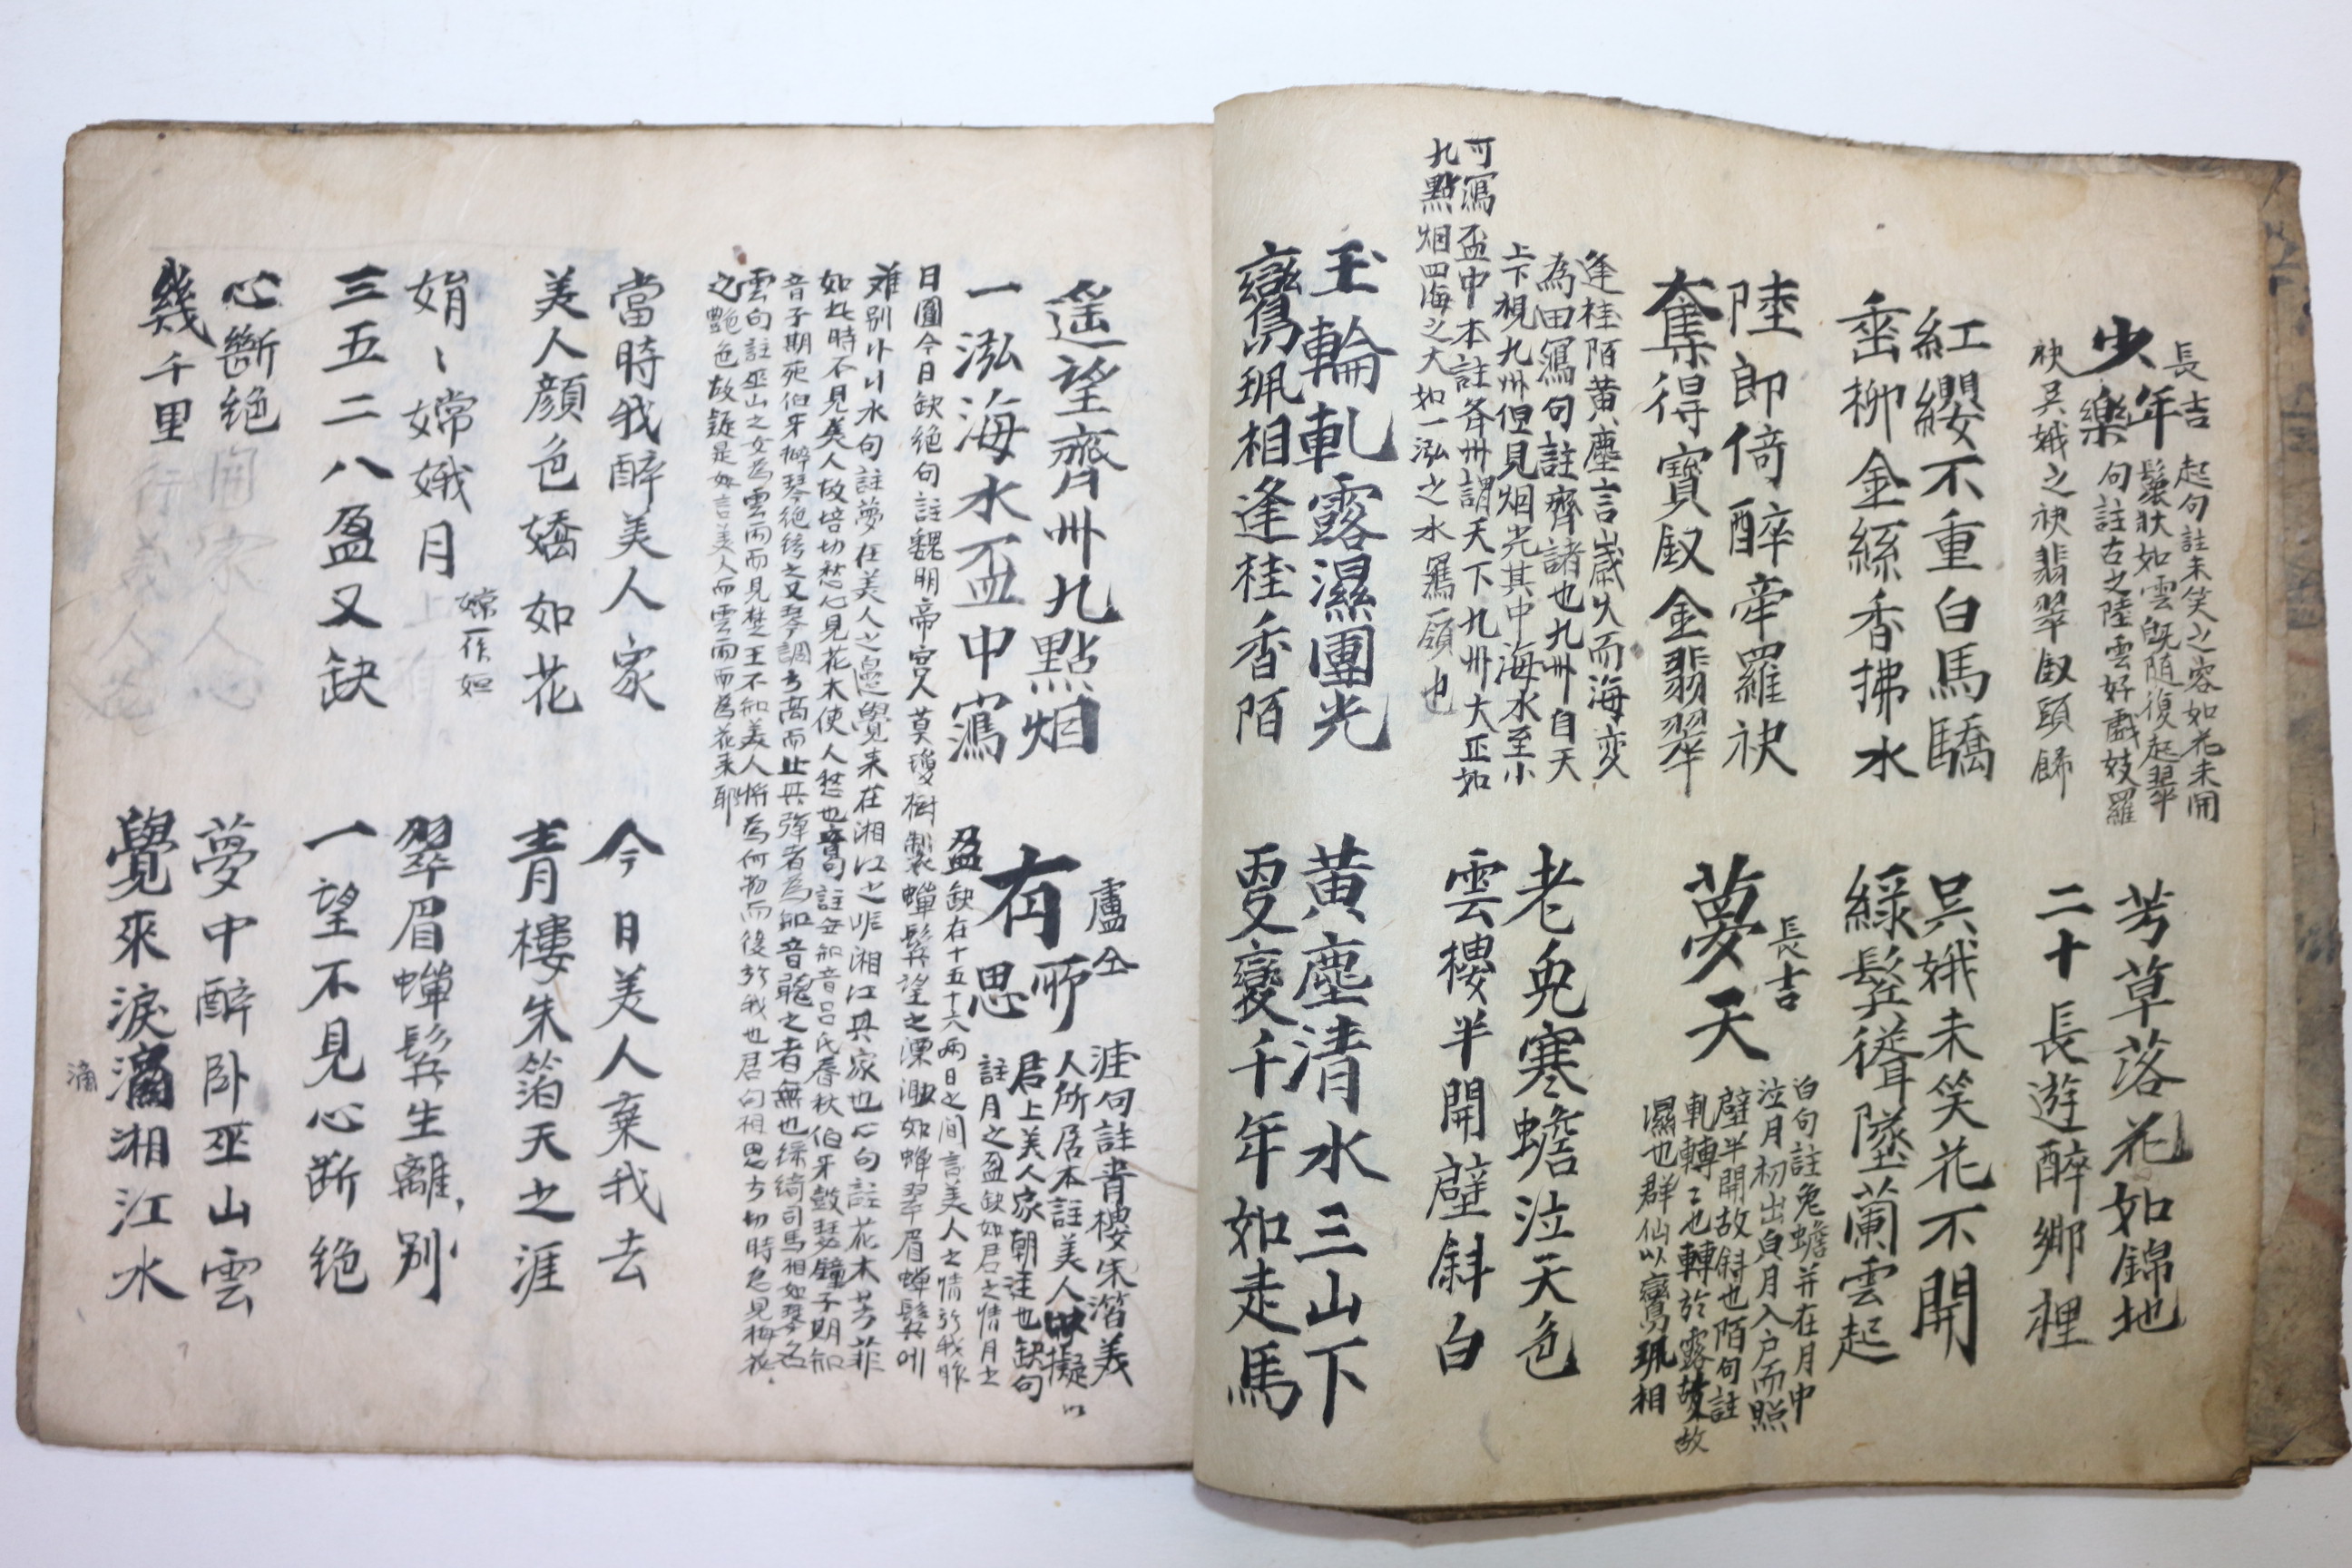 長吉
少年樂
起句註未笑之容如花未開
鬟狀如雲既随復起翠
句註古之陸雲好戲妓羅
袂吴娥之袂翡翠釵頭餙
芳草落花如錦地
二十長遊醉鄉裡
紅纓不重白馬驕
垂柳金絲香拂水
吳娥未笑花不開
綠鬢聳墜蘭雲起
陸郎倚醉牽羅袂
奪得寶釵金翡翠
長吉
夢天
白句註兔蟾并在月中
泣月初出貞月入户而照
壁半開故斜也陌句註
軋轉〻也轉於露故
濕也群仙以鸞珮相
逢桂陌黃塵言歲久而海変
為田瀉句註齊諸也九州自天
上下視九州但見烟光其中海水至小
可瀉盃中本註各州謂天下九州大正如
九點烟四海之大如一泓之水瀉領也
老兔寒蟾泣天色
雲樓半開壁斜白
玉輪軋露濕團光
鸞珮相逢桂香陌
黃塵清水三山下
更變千年如走馬
遥望齊州九點烟
一泓海水盃中瀉
盧仝
有所思
涯句註青樓朱箔美
人所居本註美人擬以
居上美人家朝涯也缺句
註月之盈缺如君之情月之
盈缺在十五十六兩日之间言美人之情於我昨
日圓今日缺绝句註魏明帝宮人莫瓊樹製蟬鬢望之漂渺如蟬翠眉蟬鬢
难别卜川水句註夢在美人之邊覺来在湘江之非湘江其家也心句註花木芳菲
如此時不見美人故培切愁心見花木使人愁也音句註無知音吕氏春秋伯牙鼓琴鐘子期知
音子期死伯牙擗琴绝絃之又琴調古高而止其弹者為知音聽之者無也綠綺司馬相如琴名
雲句註巫山之女為雲雨而見楚王不知美人將為何物而後於我也君句相思古切時忽見梅花
之艷色故疑是如言美人而雲雨而為花来耶
當時我醉美人家
美人顔色嬌如花
今日美人棄我去
青樓朱箔天之涯
娟〻嫦娥月
嫦一作姮
三五二八盈又缺
翠眉蟬鬢生離别
一望不見心断绝
心斷绝
幾千里
夢中醉卧巫山雲
覺來淚滴湘江水
滴